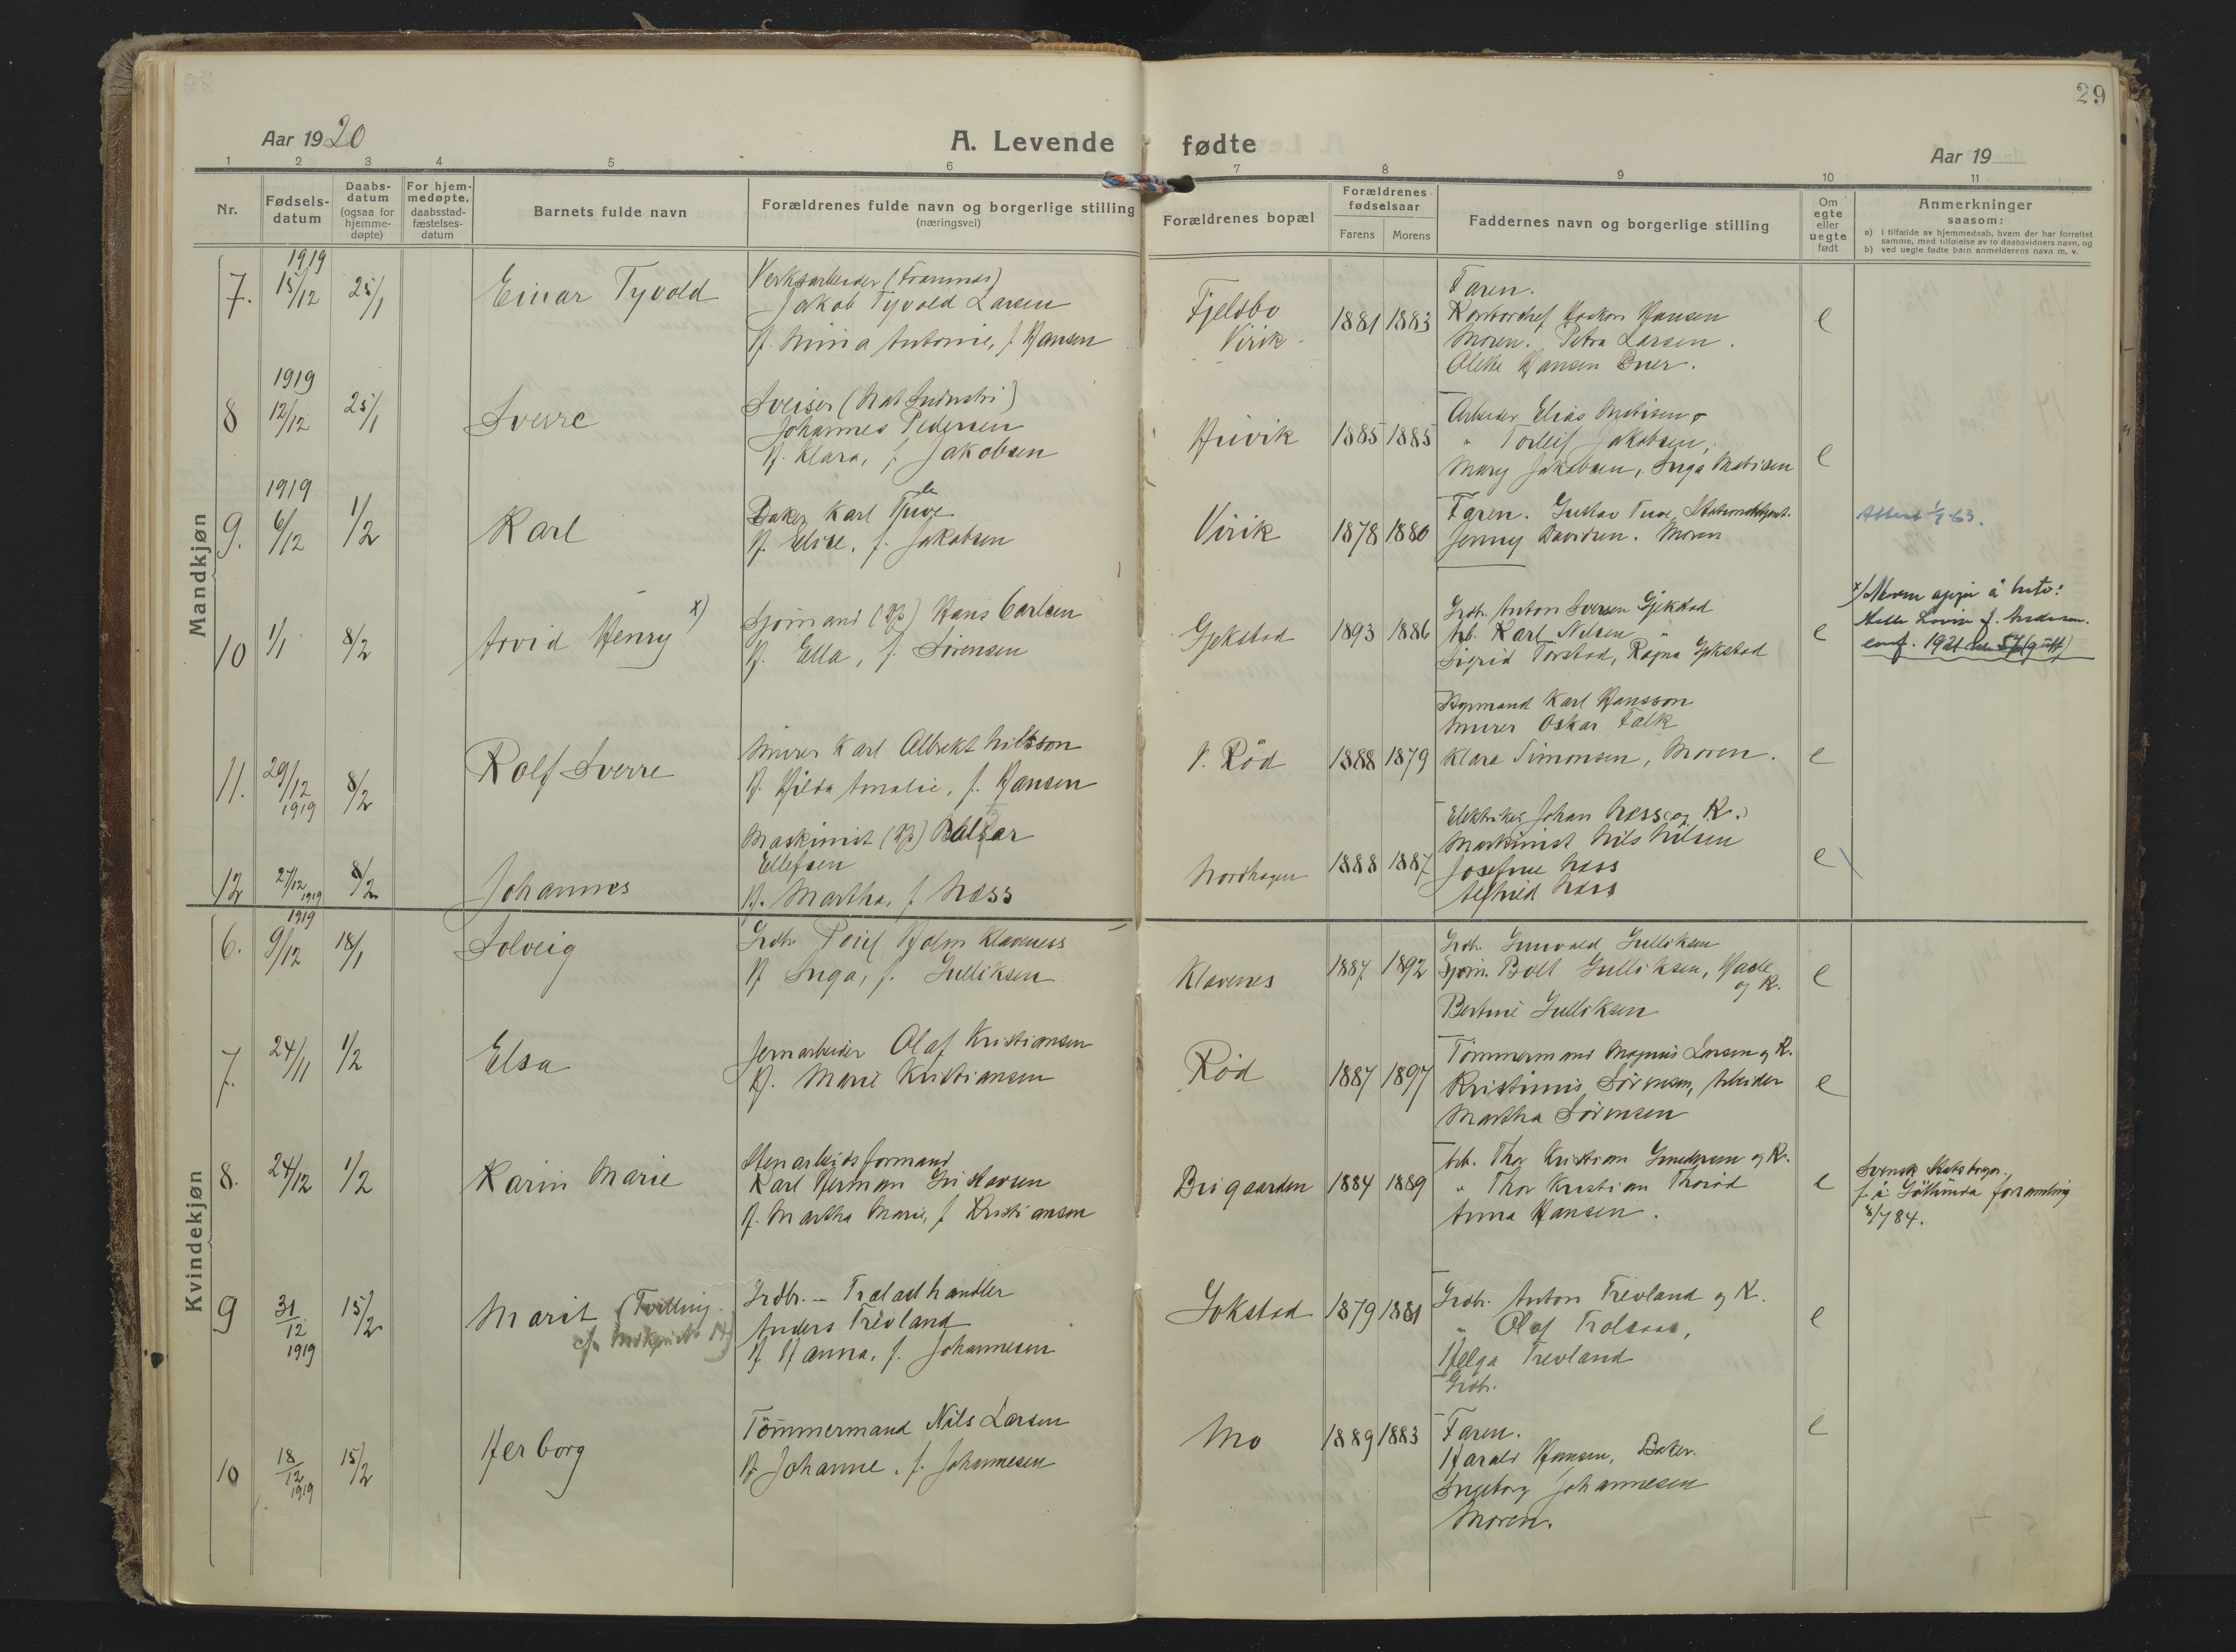 29
Aar 1920
A. Levende fødte
Aar 19
1 2 3 4 5 6 7 8 9 10 11
Nr.
Fødsels-
datum
Daabs-
datum
(ogsaa for
hjemme-
døpte)
For hjem-
medøpte.
daabsstad-
fæstelses-
datum
Barnets fulde navn
Forældrenes fulde navn og borgerlige stilling
(næringsvei)
Forældrenes bopæl
Forældrenes
fødselsaar
Farens Morens
Faddernes navn og borgerlige stilling
Om
egte
eller
uegte
født
Anmerkninger
saasom:
a) i tilfælde av hjemmedaab, hvem der har forrettet
samme, med tilføielse av to daabsvidners navn, og
b) ved uegte fødte barn anmelderens navn m. v.
Mandkjøn
1919
7. 15/12 25/1 Einar Tyvold
Verksarbeider (Framnæs)
Jakob Tyvold Larsen
H. Mina Antonie, f. Hansen
Fjeldbo
Virik
1881 1883
Faren.
Haakon Hansen
Moren. Petra Larsen.
Hansen
e
1919
8 12/12 25/1 Sverre
Sveiser (Nat Industri)
Johannes Pedersen
H. Klara, f. Jakobsen
Huvik 1885 1885
Arbeider Elias Matisen
" Torleif Jakobsen,
Mary Jakobsen, Inga Matisen
e
1919
9. 6/12 1/2 Karl
Baker Karl Tuve
H. Elise, f. Jakobsen
Virik 1878 1880
Faren. Gustav Tuve,
Jenny Davidsen. Moren
Attest 63.
10 1/1 8/2 Arvid Henry x)
Sjømand Hans Carlsen
H. Ella, f. Sørensen
Gjekstad 1893 1886
Grdbr. Anton Iversen Gjekstad
Arb. Karl Nilsen "
Sigrid Torstad, Ragna Gjekstad
e
x) Moren opgir å hete:
f. Andersen.
conf. 1921
11. 29/12 1919 8/2 Rolf Sverre
Murer Karl Albrekt Nilsson
H. Hilda Amalie, f. Hansen
V. Röd 1888 1879
Karl Hansson
Murer Oskar Falk
Klara Simonsen, Moren.
e
12 27/12 1919 8/2 Johannes
Maskinist
Ellefsen
H. Martha, f. Næss
Nordhagen 1888 1887
Elektriker Johan Næss og K.
Maskinist Nils Nilsen
Josefine Næss
Alfhild Næss
e
Kvindekjøn
1919
6. 9/12 18/1 Solveig
Grdbr. Holm Klaveness
H. Inga, f. Gulliksen
Klavenes 1887 1892
Grdbr. Gunvald Gulliksen
Sjøm. Bolt Gulliksen,
og K.
Bertine Gulliksen
e
7. 24/11 1/2 Elsa
Jernarbeider Olaf Kristiansen
H. Marie Kristiansen
Röd 1887 1897
Tömmermand Magnus Larsen og K.
Sörensen, Arbeider
Martha Sörensen
e
8. 24/12 1/2 Karin Marie
Stenarbeidsformand
Karl Herman Gustavsen
H. Martha Marie, f. Kristiansen
Brigaarden 1884 1889
Arb. Thor Kristian og K.
" Thor Kristian Thoröd
Anna Hansen.
e
Svensk Statsborger.
f. i forsamling
8/7 84.
9 31/12 1919 15/2 Marit (Tvilling
Grdbr. - Trælasthandler
Anders Trevland
H. Hanna, f. Johannesen
Gokstad 1879 1881
Grdbr. Anton Trevland og K.
" Olaf
Helga Trevland
Grdbr.
e
10 18/12 1919 15/2 Herborg
Tömmermand Nils Larsen
H. Johanne, f. Johannesen
Mo 1889 1883
Faren.
Harald Hansen, Baker.
Ingeborg Johannesen
Moren.
e